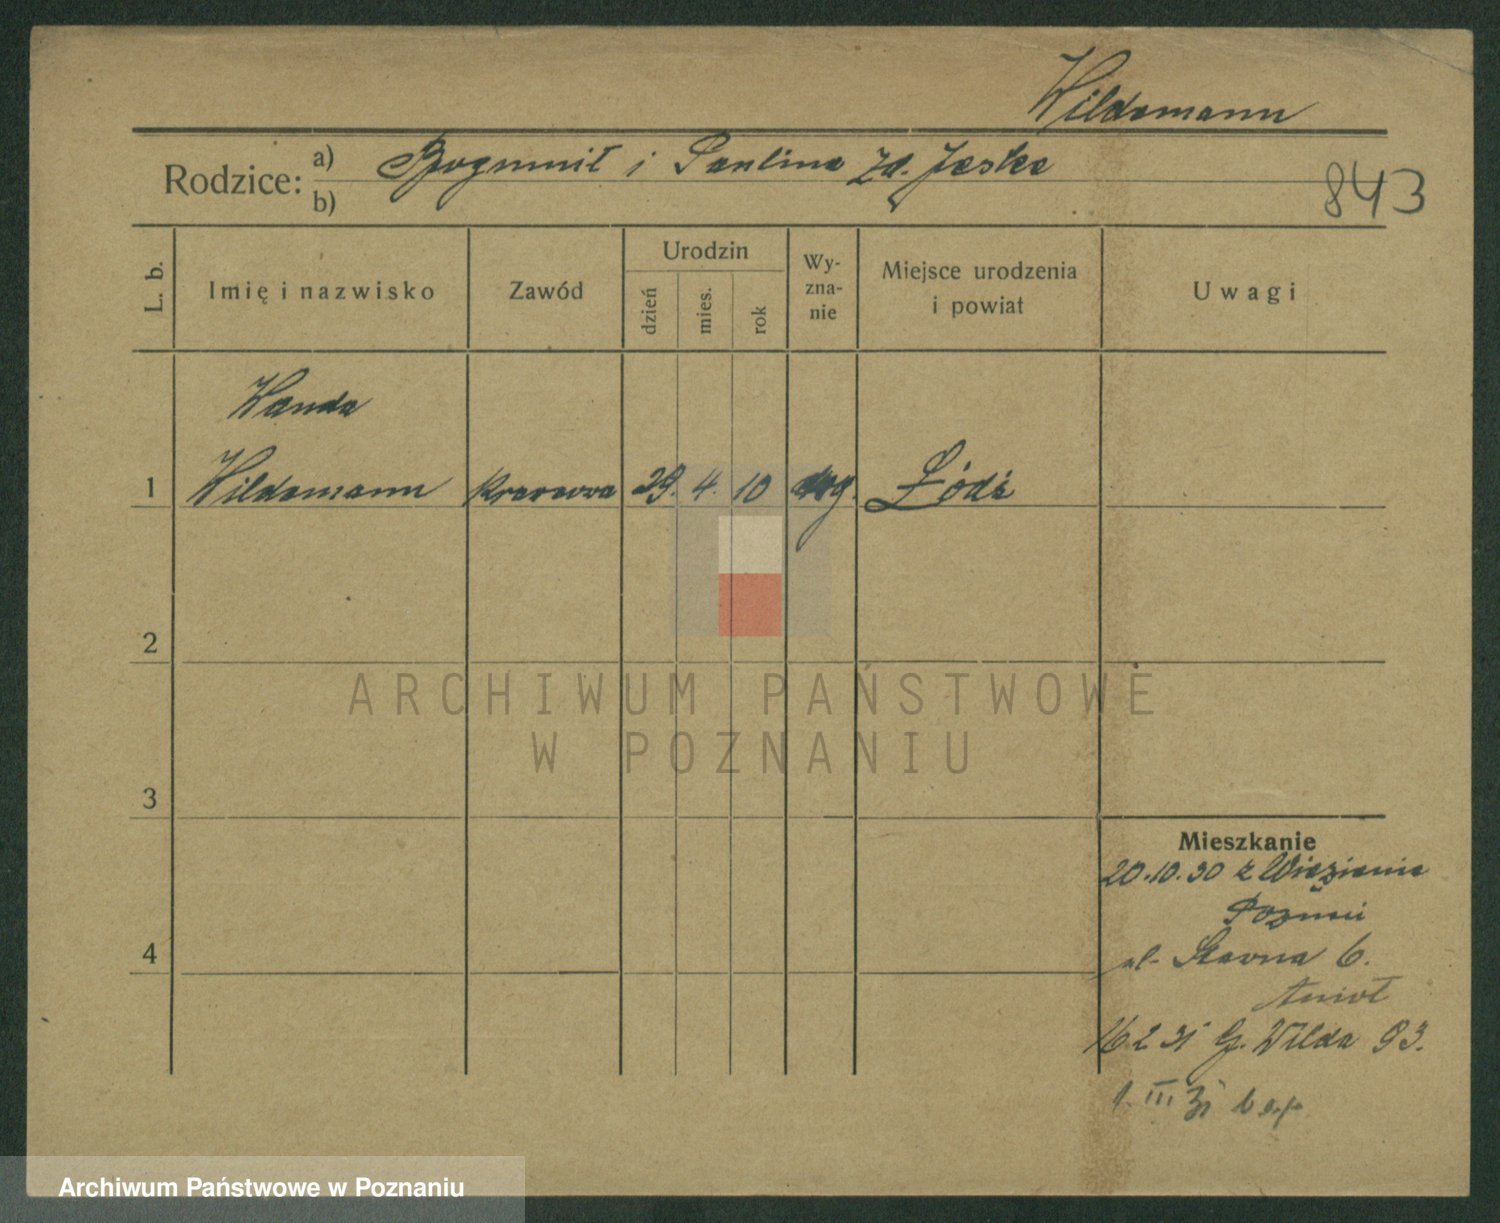 Wildemann
Rodzice:
a) Bogumił i Paulina zd. Jeske
b)
843
L. b.
Imię i nazwisko
Zawód
Urodzin
dzień
mies.
rok
Wy-
zna-
nie
Miejsce urodzenia
i powiat
Uwagi
Wanda
1 Wildemann krawowa 29. 4. 10 Łódź
2
3
4
ARCHIWUM PAŃSTWOWE
W POZNANIU
Mieszkanie
20.10.30 z Więzienia
ul. Sławna 6.
Anioł
16 2 31 G. Wilda 93.
1. III 31
Archiwum Państwowe w Poznaniu